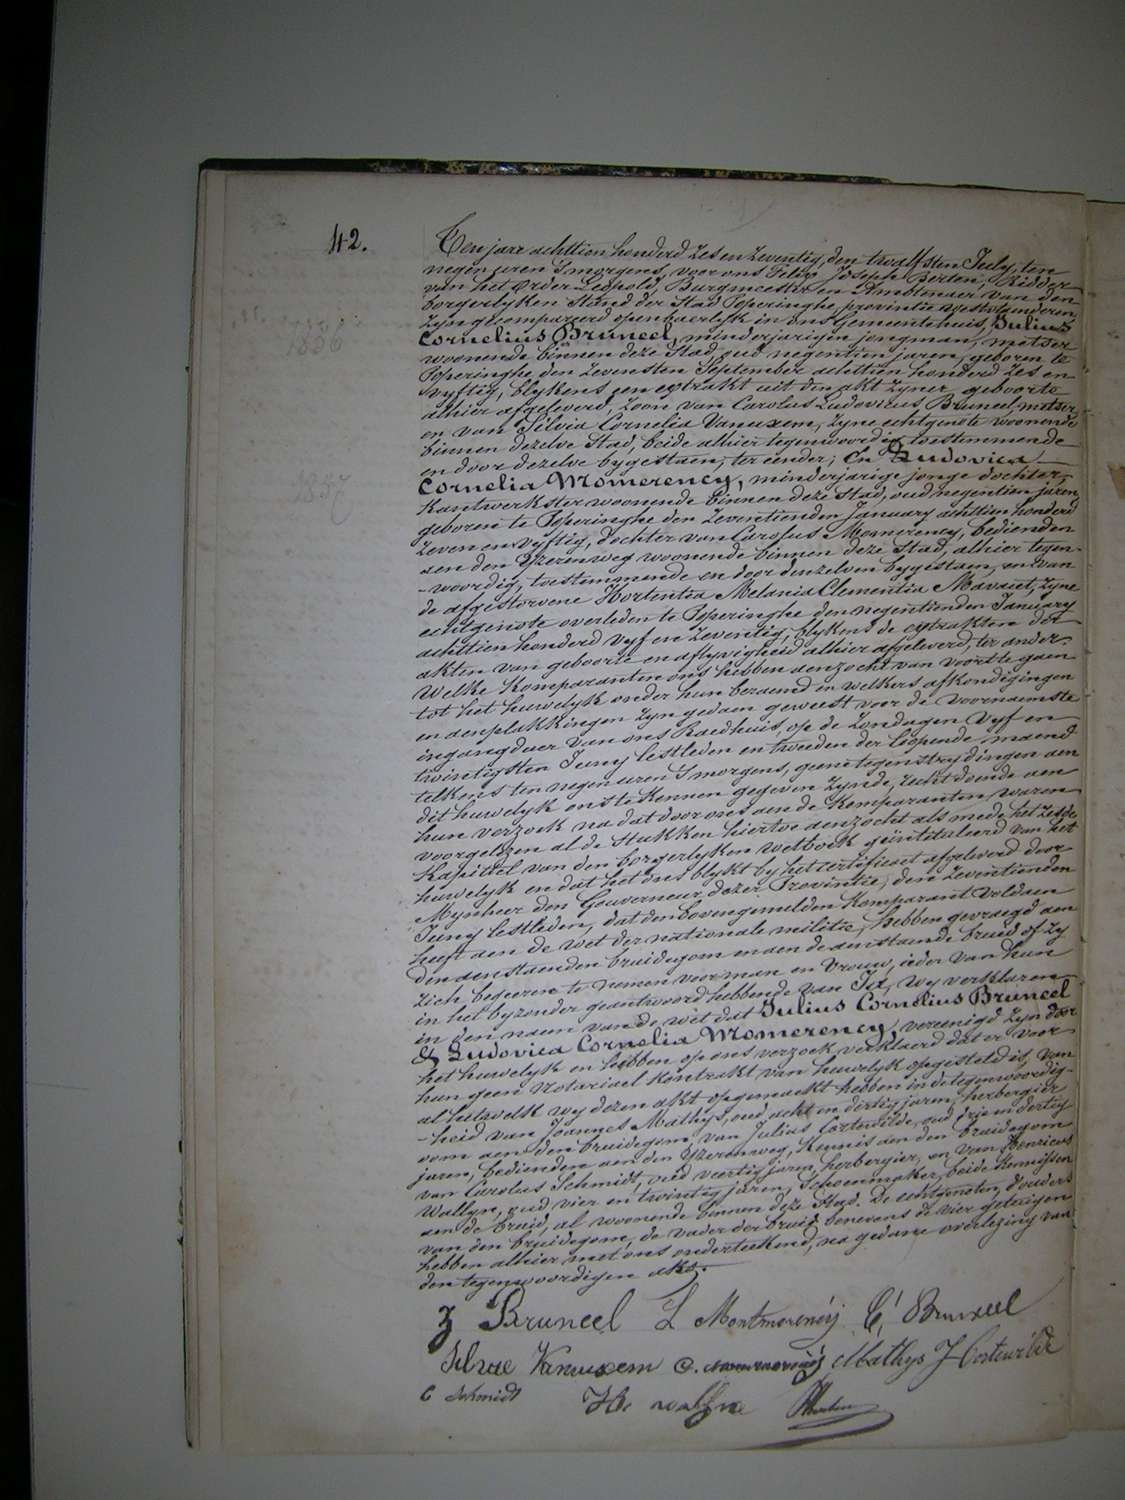 42.
1856
1857
Ten jare achttien honderd zes en zeventig, den twaalfsten July, ten
negen uren 's morgens, voor ons Felix Joseph Berten, Ridder
van het Order Leopold, Burgmeester en Ambtenaer van den
borgerlyken Stand der Stad Poperinghe, provintie Westvlaenderen,
zyn gecompareerd openbaerlyk in ons Gemeentehuis, Julius
Cornelius Bruneel, minderjarigen jongman, metser
woonende binnen deze Stad, oud negentien jaren, geboren te
Poperinghe den zevensten September achttien honderd zes en
vyftig, blykens een extrakt uit den akt zyner geboorte
alhier afgeleverd, zoon van Carolus Ludovicus Bruneel, metser,
en van Silvia Cornelia Vanuxem, zyne echtgenote woonende
binnen dezelve Stad, beide alhier tegenwoordig toestemmende
en door dezelve bygestaen, ter eender; En Ludovica
Cornelia Momerency, minderjarige jonge dochter,
Kantwerkster woonende binnen deze Stad, oud negentien jaren,
geboren te Poperinghe den zeventienden January achttien honderd
zeven en vyftig, dochter van Carolus Momerency, bedienden
aen den Yzerenweg woonende binnen deze Stad, alhier tegen-
-woordig, toestemmende en door denzelven bygestaen, en van
de afgestorvene Hortentia Melania Clementia Mavaut, zyne
echtgenote overleden te Poperinghe den negentienden January
achttien honderd vyf en zeventig, blykens de extrakten der
akten van geboorte en aflyvigheid alhier afgeleverd, ter ander.
Welke Komparanten ons hebben aenzocht van voort te gaen
tot het huwelyk onder hun beraemd en welkers afkondigingen
en aenplakkingen zyn gedaen geweest voor de voornaemste
ingangdeur van ons Raedhuis, op de zondagen vyf en
twintigsten Juny lestleden en tweeden der loopende maend
telkens ten negen uren 's morgens, geene tegenstrydingen aen
dit huwelyk ons te kennen gegeven zynde, recht doende aen
hun verzoek na dat door ons aen de Komparanten waren
voorgelezen al de stukken hiertoe aenzocht als mede het zesde
Kapittel van den borgerlyken wetboek geïntituleerd van het
huwelyk en dat het ons blykt by het certificaet afgeleverd door
Mynheer den Gouverneur dezer Provintie, den zeventienden
Juny lestleden, dat den bovengemelden Komparant voldaen
heeft aen de wet der nationale militie, hebben gevraegd aen
den aenstaenden bruidegom en aen de aenstaende bruid of zy
zich begeeren te nemen voor man en vrouw, ieder van hun
in het byzonder geantwoord hebbende van Ja, wy verklaren
in den naem van de wet dat Julius Cornelius Bruneel
& Ludovica Cornelia Momerency, vereenigd zyn door
het huwelyk en hebben op ons verzoek verklaerd dat er voor
hun geen Notariael Kontrakt van huwelyk opgesteld is, van
al hetwelk wy dezen akt opgemaekt hebben in de tegenwoordig-
-heid van Joannes Mathys, oud acht en dertig jaren, herbergier
oom aen den bruidegom, van Julius Cortewilde, oud drie en dertig
jaren, bedienden aen den Yzerenweg, Kennis aen den bruidegom
van Carolus Schmidt, oud veertig jaren, herbergier, en van Henricus
Wallyn, oud vier en twintig jaren, schoenmaker, beide Kennissen
aen de bruid, al woonende binnen deze Stad. De echtgenoten, d'ouders
van den bruidegom, de vader der bruid benevens de vier getuigen
hebben alhier met ons onderteekend, na gedane voorlezing van
den tegenwoordigen akt.
J Bruneel L Montmorency C, Bruneel
Silvie Vanuxem C. Mathys J Cortewilde
C Schmidt He wallyne